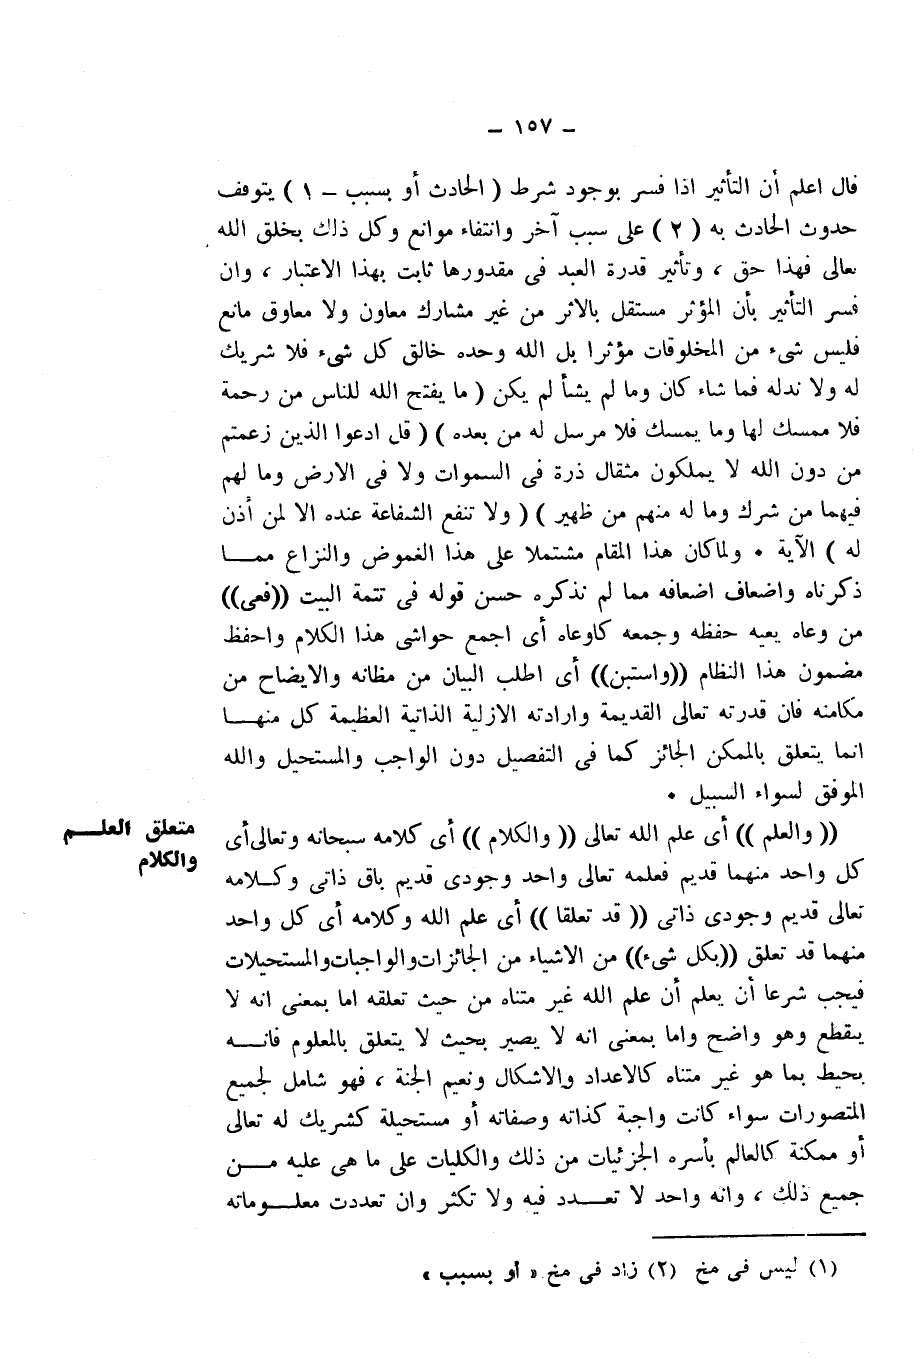 – ١٥٧ –
قال اعلم أن التأثير اذا فسر بوجود شرط ( الحادث أو بسبب – ١ ) يتوقف
حدوث الحادث به ( ٢ ) على سبب آخر وانتفاء موانع وكل ذلك بخلق الله
تعالى فهذا حق ، وتأثير قدرة العبد فى مقدورها ثابت بهذا الاعتبار ، وان
فسر التأثير بأن المؤثر مستقل بالاثر من غير مشارك معاون ولا معاوق مانع
فليس شىء من المخلوقات مؤثرا بل الله وحده خالق كل شىء فلا شريك
له ولا ندله فما شاء كان وما لم يشأ لم يكن ( ما يفتح الله للناس من رحمة
فلا ممسك لها وما يمسك فلا مرسل له من بعده ) ( قل ادعوا الذين زعمتم
من دون الله لا يملكون مثقال ذرة فى السموات ولا فى الارض وما لهم
فيهما من شرك وما له منهم من ظهير ) ( ولا تنفع الشفاعة عنده الا لمن أذن
له ) الآية • ولما كان هذا المقام مشتملا على هذا الغموض والنزاع ممـــا
ذكرناه واضعاف اضعافه مما لم نذكره حسن قوله فى تتمة البيت ((فعى))
من وعاه يعيه حفظه وجمعه كاوعاه أى اجمع حواشى هذا الكلام واحفظ
مضمون هذا النظام ((واستبن)) أى اطلب البيان من مظانه والايضاح من
مكامنه فان قدرته تعالى القديمة وارادته الازلية الذاتية العظيمة كل منهـــا
انما يتعلق بالممكن الجائز كما فى التفصيل دون الواجب والمستحيل والله
الموفق لسواء السبيل •
متعلق العلـــم
والكلام
(( والعلم )) أى علم الله تعالى (( والكلام )) أى كلامه سبحانه وتعالى أى
كل واحد منهما قديم فعلمه تعالى واحد وجودى قديم باق ذاتى وكـلامه
تعالى قديم وجودى ذاتى (( قد تعلقا )) أى علم الله وكلامه أى كل واحد
منهما قد تعلق ((بكل شىء)) من الاشياء من الجائزات والواجبات والمستحيلات
فيجب شرعا أن يعلم أن علم الله غير متناه من حيث تعلقه اما بمعنى انه لا
ينقطع وهو واضح واما بمعنى انه لا يصير بحيث لا يتعلق بالمعلوم فانـــه
يحيط بما هو غير متناه كالاعداد والاشكال ونعيم الجنة ، فهو شامل لجميع
المتصورات سواء كانت واجبة كذاته وصفاته أو مستحيلة كشريك له تعالى
أو ممكنة كالعالم بأسره الجزئيات من ذلك والكليات على ما هى عليه مـــن
جميع ذلك ، وانه واحد لا تعـــدد فيه ولا تكثر وان تعددت معلـــوماته
(١) ليس فى مخ (٢) زاد فى مخ « أو بسبب »